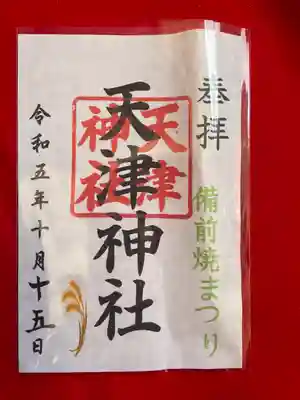 奉拝
備前焼まつり
天津神社
天津
神社
令和五年十月十五日